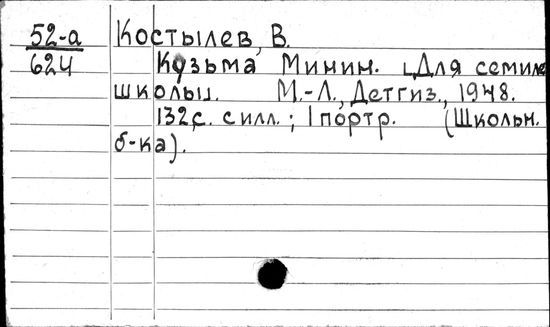 52-а Костылев, В.
624 Кузьма Минин. [Для семил.
школы]. М.-Л., Детгиз, 1948.
132 с. с илл.; 1 портр. (Школьн.
б-ка).